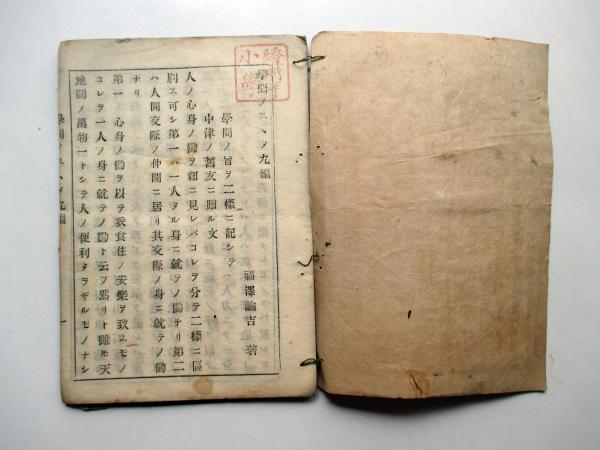 學問ノスヽメ九編
福澤諭吉 著
學問ノ旨ヲ二樣ニ記シテ
中津ノ舊友ニ贈ル文
人ノ心身ノ働ヲ細ニ見レバコレヲ分テ二樣ニ區
別ス可シ第一ハ一人タル身ニ就テノ働ナリ第二
ハ人間交際ノ仲間ニ居リ其交際ノ身ニ就テノ働
ナリ
第一 心身ノ働ヲ以テ衣食住ノ安樂ヲ致スモノ
コレヲ一人ノ身ニ就テノ働ト云フ然リト雖𪜈天
地間ノ萬物一トシテ人ノ便利タラザルモノナシ
學問ノスヽメ九編
一
小學